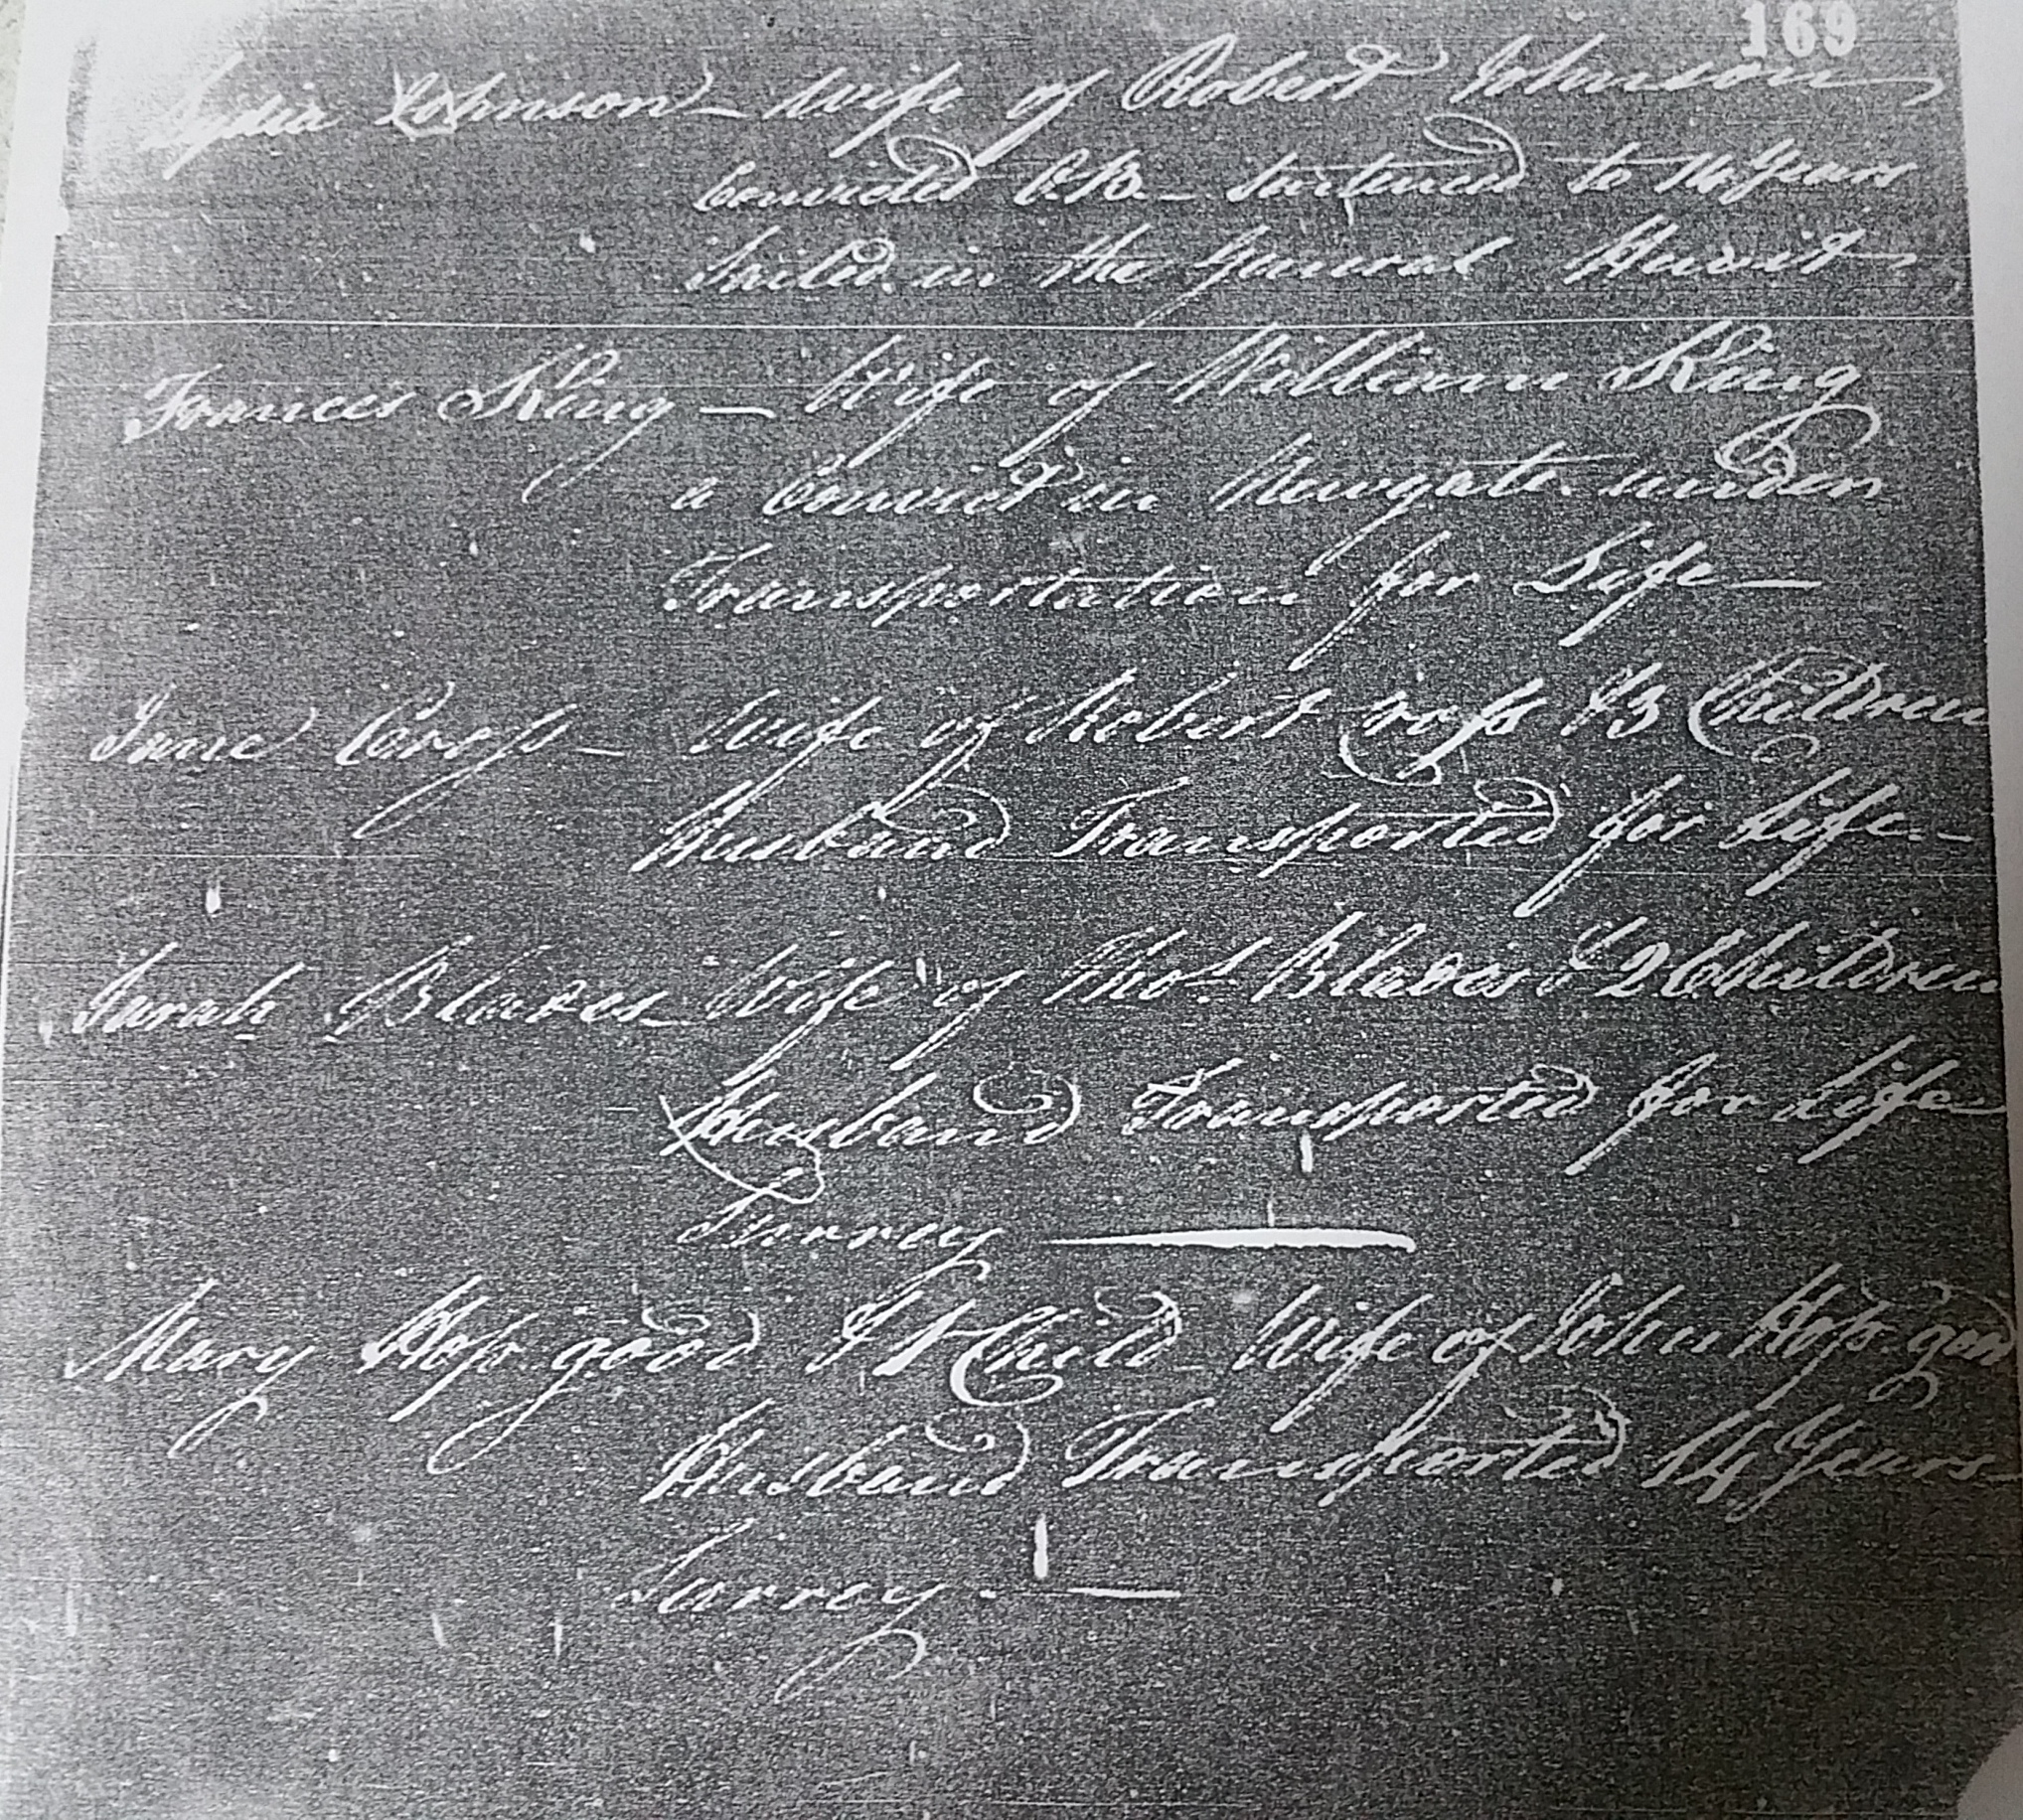 169
Lydia Johnson - Wife of Robert Johnson
Convicted O.B. - Sentenced to 14 Years
Sailed in the General Hewit
Frances King - Wife of William King
a Convict in Newgate under
Transportation for Life
Jane Cross - Wife of Robert Cross & 3 Children
Husband Transported for Life -
Sarah Blades Wife of Thos. Blades & 2 Children
Husband Transported for Life
Surrey
Mary Hopgood & 1 Child Wife of John Hopgood
Husband Transported 14 Years
Surrey